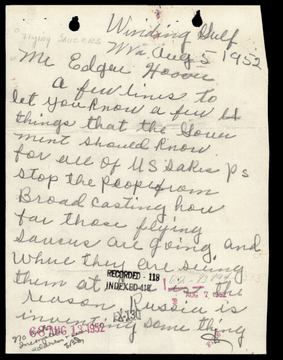 Flying Saucers
Winding Gulf
W.Va Aug 5 1952
Mr Edgar Hoover
A few lines to
let you Know a few
things that the Gover
ment should Know
for all of us sakes Ps
stop the People from
Broad Casting how
far those flying
saucus are going, and
where they are seeing
them at
the
reason Russia is
inventing some thing
RECORDED - 118
INDEXED-118
AUG 7, 1952
68 AUG 13 1952